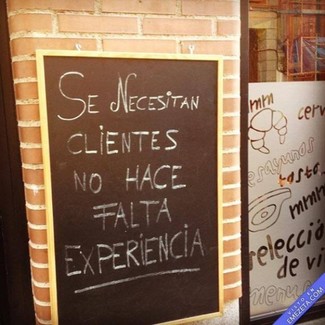 SE NECESITAN
CLIENTES
NO HACE
FALTA
EXPERIENCIA
mmm
cerv
desayunos
tosta
mmm
selecció
de vi
menu
VISTO EN
EMEZETA.COM